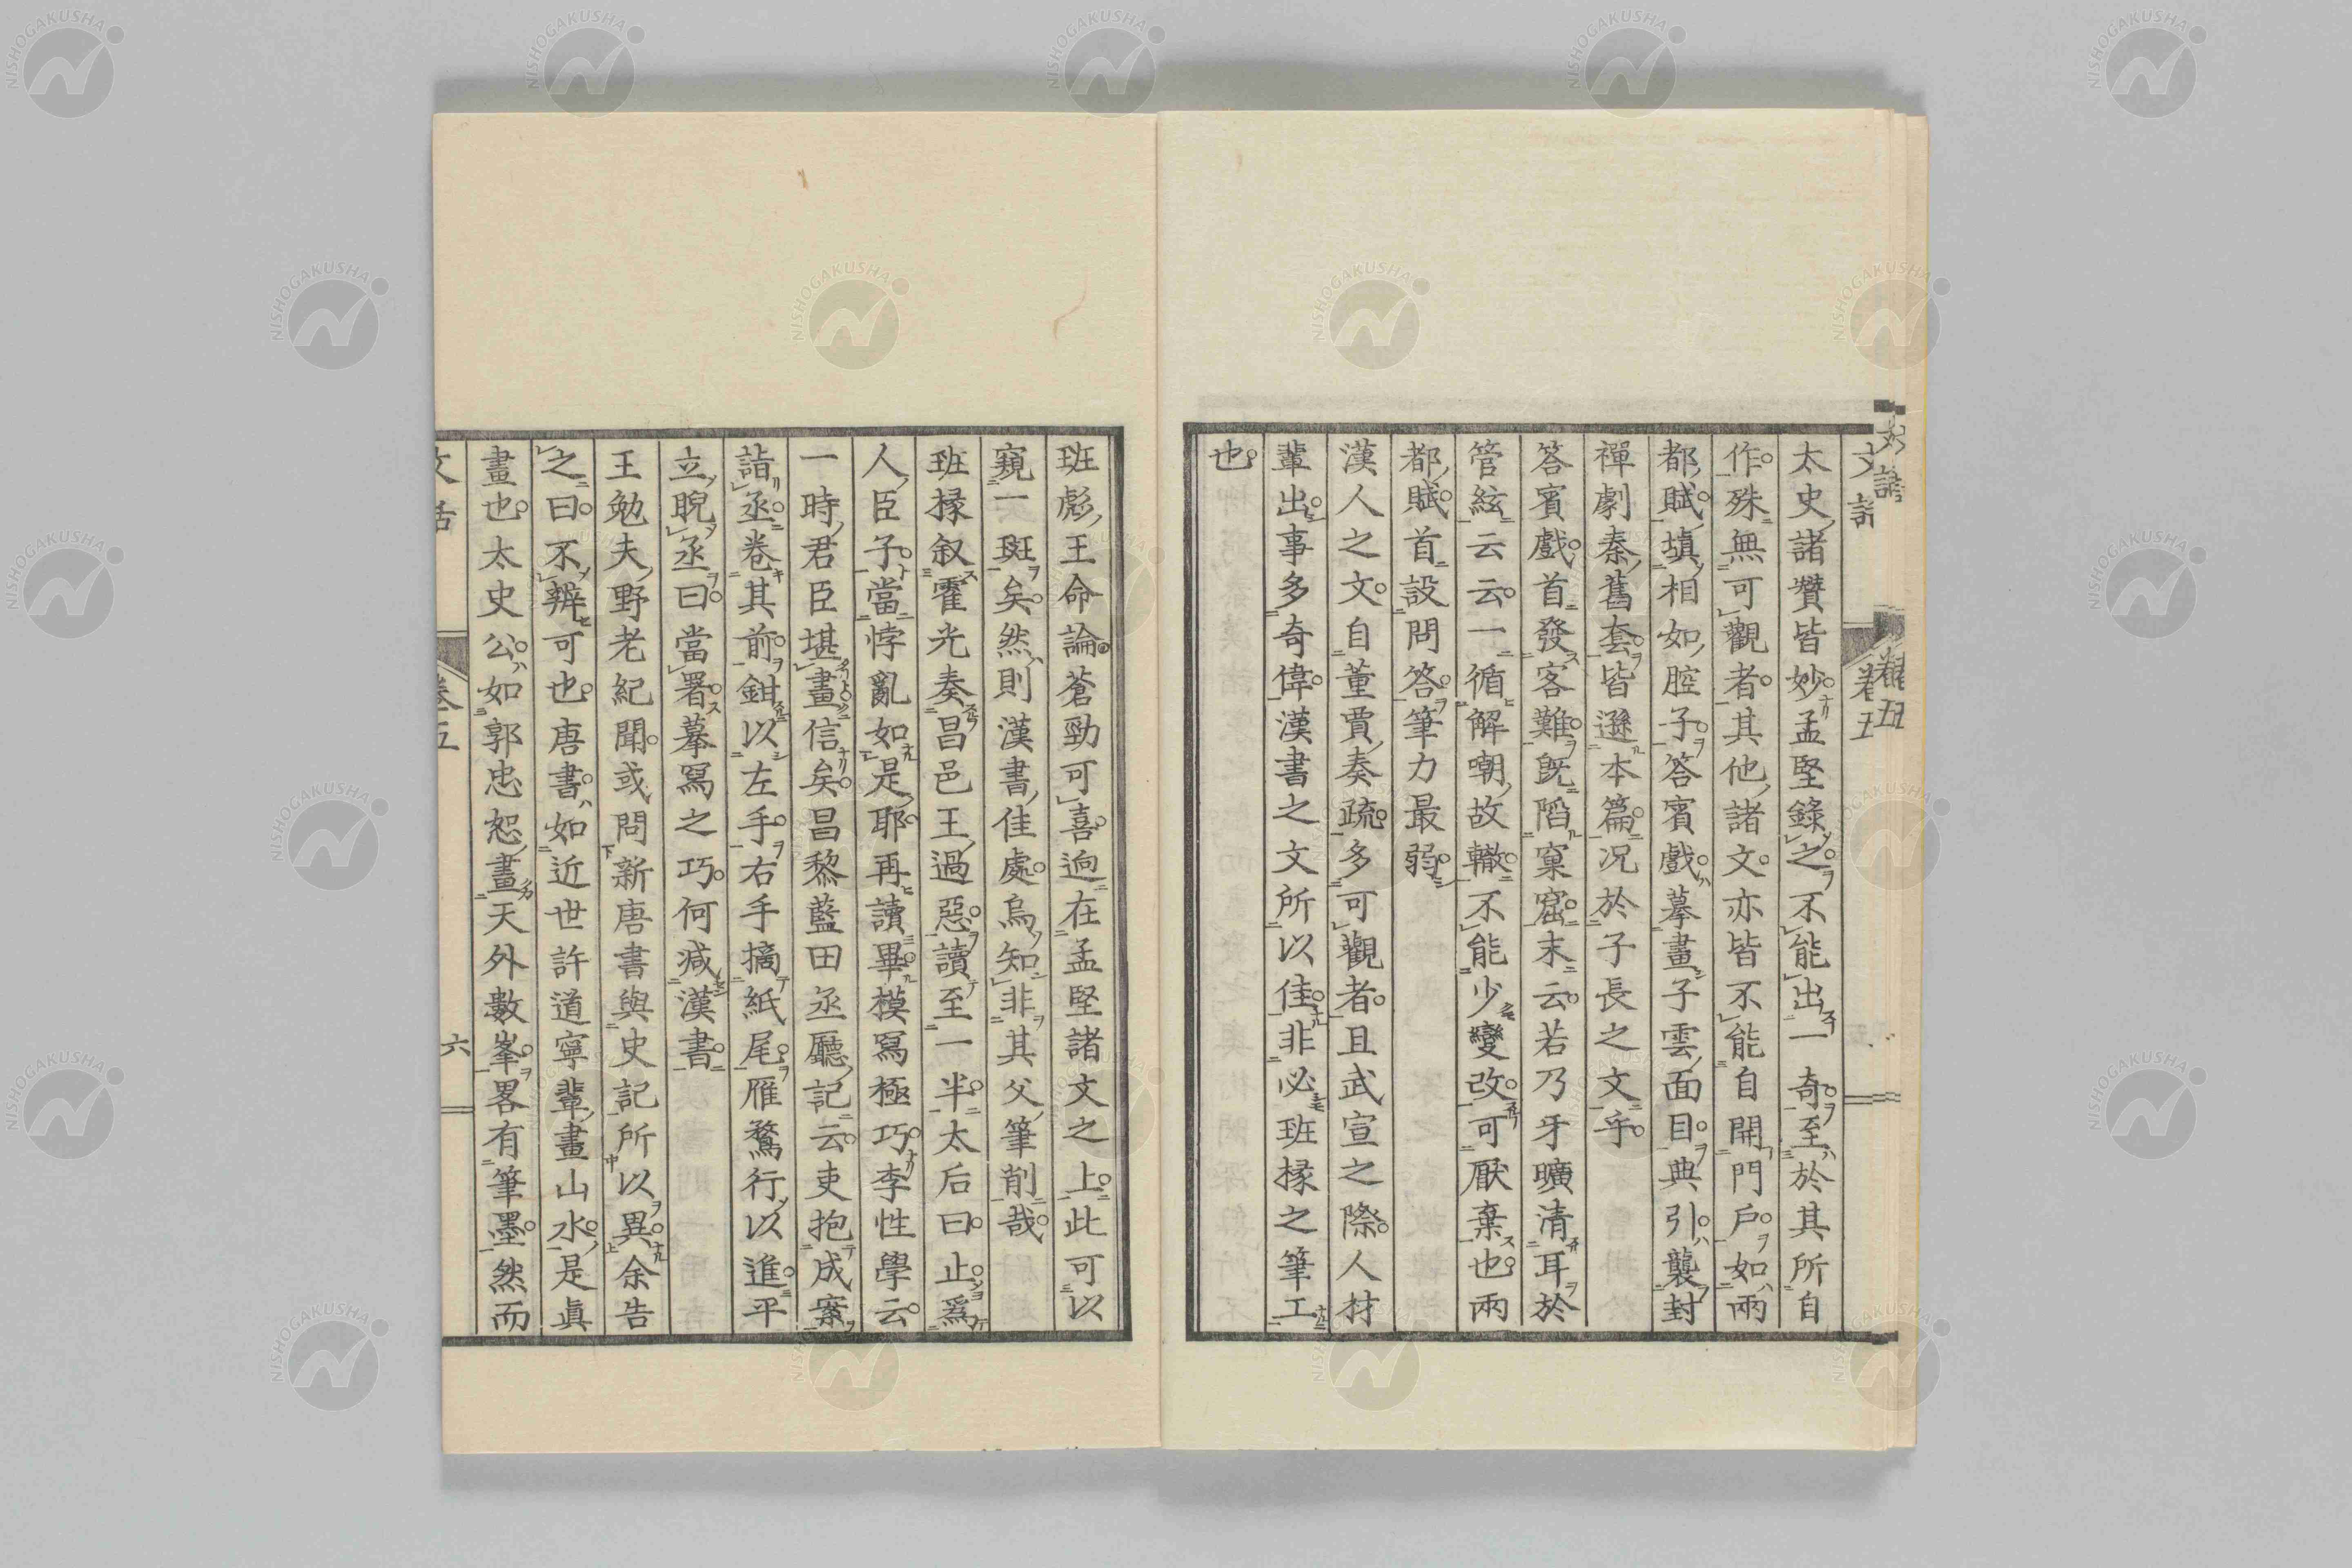 太史諸贊皆妙孟堅錄之不能出一奇至於其所自
作殊無可觀者其他諸文亦皆不能自開門戶如兩
都賦塡相如腔子答賓戲摹畫子雲面目典引襲封
禪劇秦舊套皆遜本篇况於子長之文乎
答賓戲首發客難既陷窠窟末云若乃牙曠淸耳於
管絃云云一循解嘲故轍不能少變改可厭棄也兩
都賦首設問答筆力最弱
漢人之文自董賈奏疏多可觀者且武宣之際人材
輩出事多奇偉漢書之文所以佳非必班掾之筆工
也
班彪王命論蒼勁可喜逈在孟堅諸文之上此可以
窺一斑矣然則漢書佳處烏知非其父筆削哉
班掾叙霍光奏昌邑王過惡讀至一半太后曰止爲
人臣子當悖亂如是耶再讀畢模寫極巧李性學云
一時君臣堪畫信矣昌黎藍田丞廳記云吏抱成案
詣丞卷其前鉗以左手右手摘紙尾雁鶩行以進平
立睨丞曰當署摹寫之巧何減漢書
王勉夫野老紀聞或問新唐書與史記所以異余告
之曰不辨可也唐書如近世許道寧輩畫山水是眞
畫也太史公如郭忠恕畫天外數峯畧有筆墨然而
文話 卷五 六